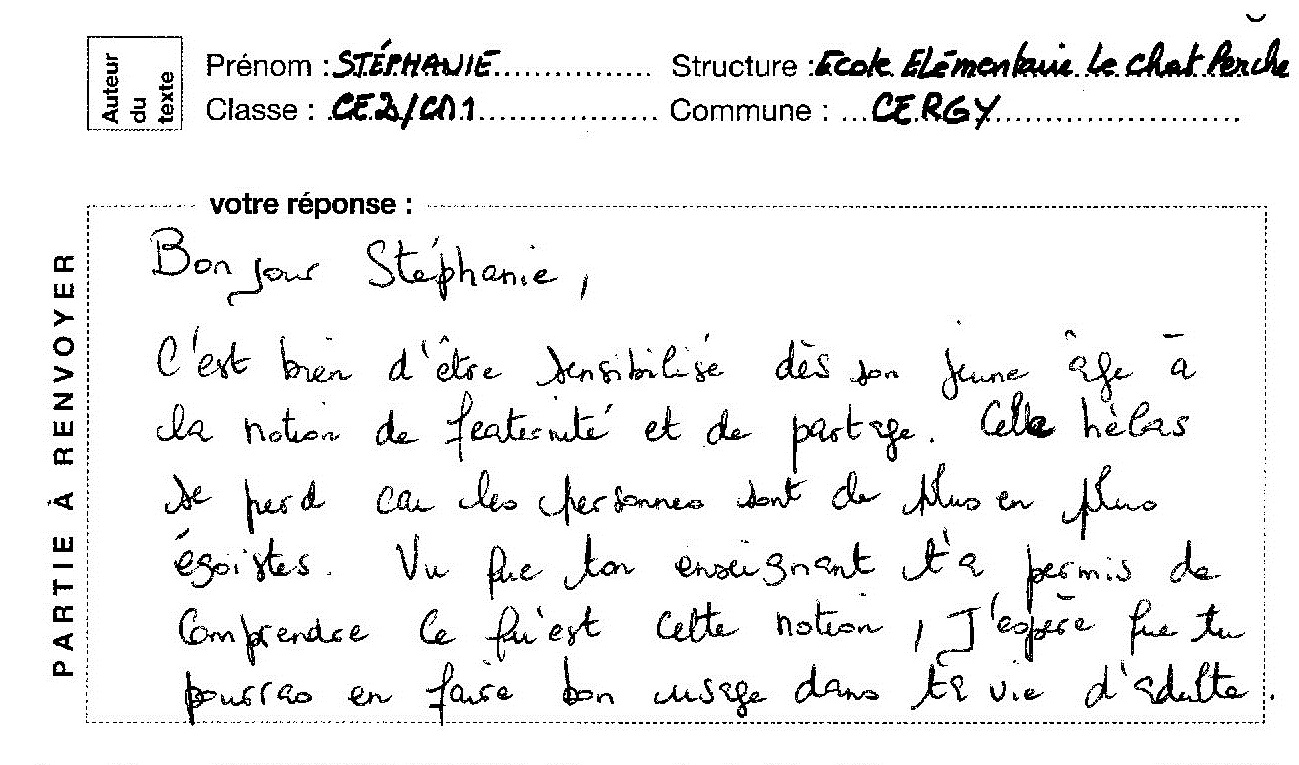 Auteur du texte
Prénom : STÉPHANIE............... Structure : Ecole Elémentaire Le Chat Perché
Classe : CE2/CM1................... Commune : ...CERGY........................
PARTIE À RENVOYER
votre réponse :
Bonjour Stéphanie,
C'est bien d'être sensibilisé dès son jeune âge à
la notion de fraternité et de partage. Celle hélas
se perd car les personnes sont de plus en plus
égoistes. Vu que ton enseignant t'a permis de
Comprendre Ce qu'est cette notion, J'espère que tu
pourras en faire bon usage dans ta vie d'adulte.